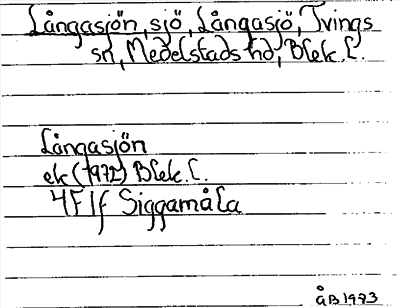 Långasjön, sjö, Långasjö, Tvings
sn, Medelstads hd, Blek. l.
Långasjön
ek (1972) Blek. l.
4F1f Siggamåla
ÅB 1973